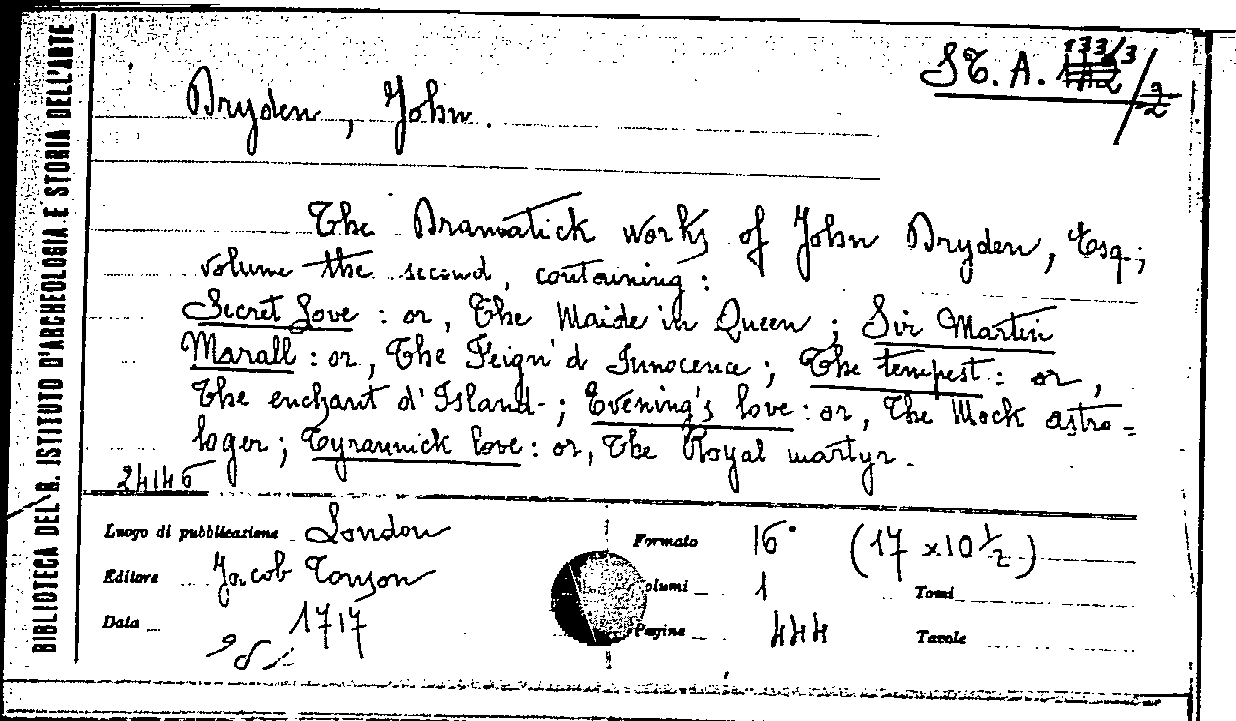 BIBLIOTECA DEL R. ISTITUTO D'ARCHEOLOGIA E STORIA DELL'ARTE
ST. A. 133/3/2
Dryden, John.
The Dramatick works of John Dryden, Esq.;
volume the second, containing:
Secret Love: or, The Maide in Queen; Sir Martin
Marall: or, The Feign'd Innocence; The tempest: or,
The enchant d'Island; Evening's love: or, The Mock astro-
loger; Tyrannick love: or, The Royal martyr.
24146
Luogo di pubblicazione London
Formato 16° (17 x 10 1/2)
Editore Jacob Tonson
Volumi 1 Tomi
Data 1717
Pagine 444 Tavole